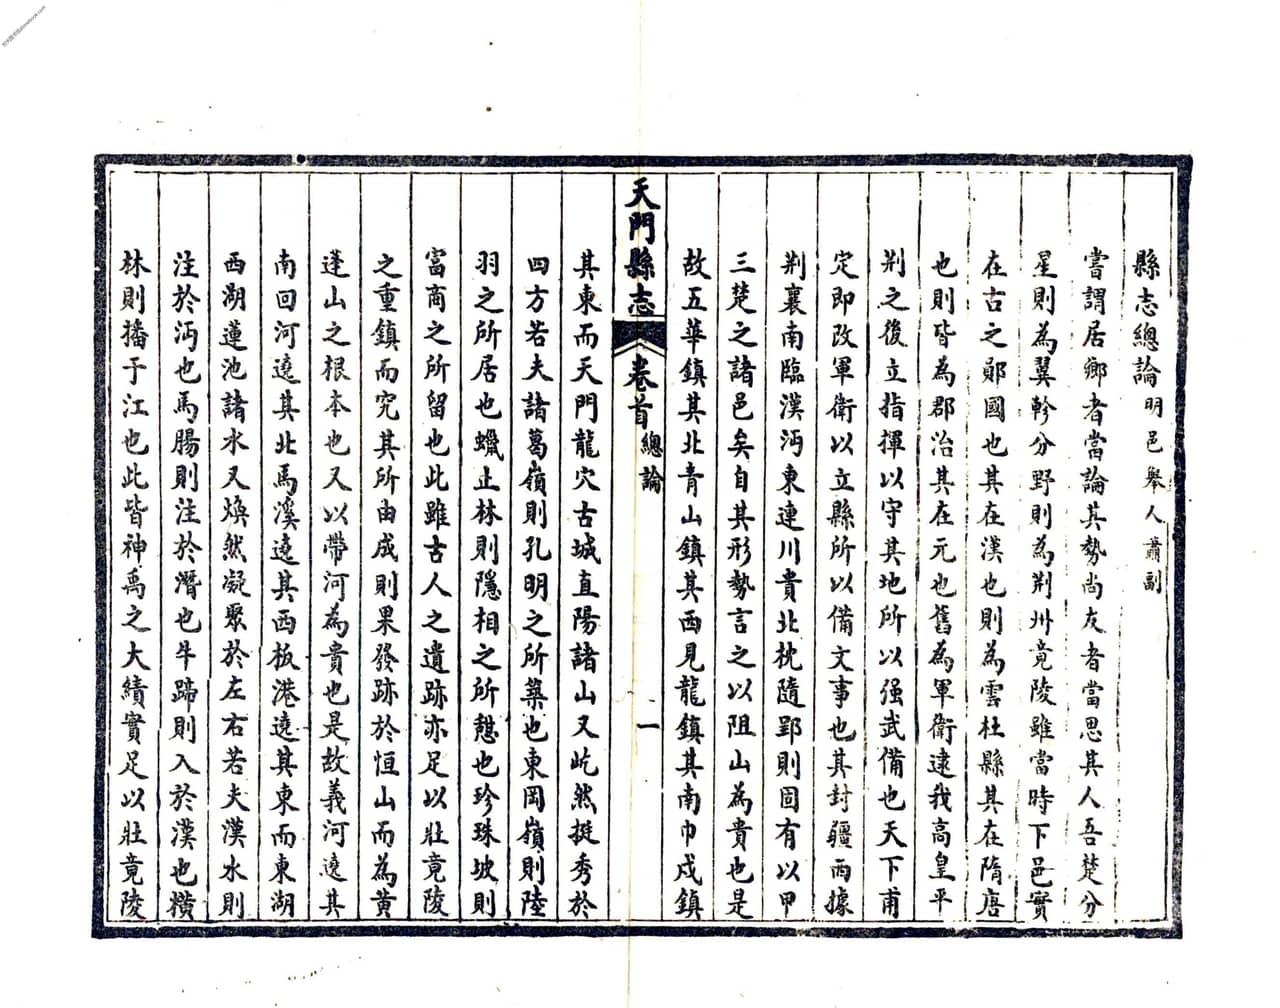 縣志總論明邑舉人蕭副
嘗謂居鄉者當論其勢尚友者當思其人吾楚分
星則為翼軫分野則為荆州竟陵雖當時下邑實
在古之鄖國也其在漢也則為雲杜縣其在隋唐
也則皆為郡治其在元也舊為軍衛逮我高皇平
荆之後立指揮以守其地所以强武備也天下甫
定即改軍衛以立縣所以備文事也其封疆西據
荆襄南臨漢沔東連川貴北枕隨郢則固有以甲
三楚之諸邑矣自其形勢言之以阻山為貴也是
故五華鎮其北青山鎮其西見龍鎮其南巾戍鎮
天門縣志 卷首總論 一
其東而天門龍穴古城直陽諸山又屹然挺秀於
四方若夫諸葛嶺則孔明之所築也東岡嶺則陸
羽之所居也蠟止林則隱相之所憩也珍珠坡則
富商之所留也此雖古人之遺跡亦足以壯竟陵
之重鎮而究其所由成則果發跡於恒山而為黄
蓬山之根本也又以帶河為貴也是故義河遶其
南回河遶其北馬溪遶其西板港遶其東而東湖
西湖蓮池諸水又煥然凝聚於左右若夫漢水則
注於沔也馬腸則注於潛也牛蹄則入於漢也横
林則播于江也此皆神禹之大績實足以壯竟陵